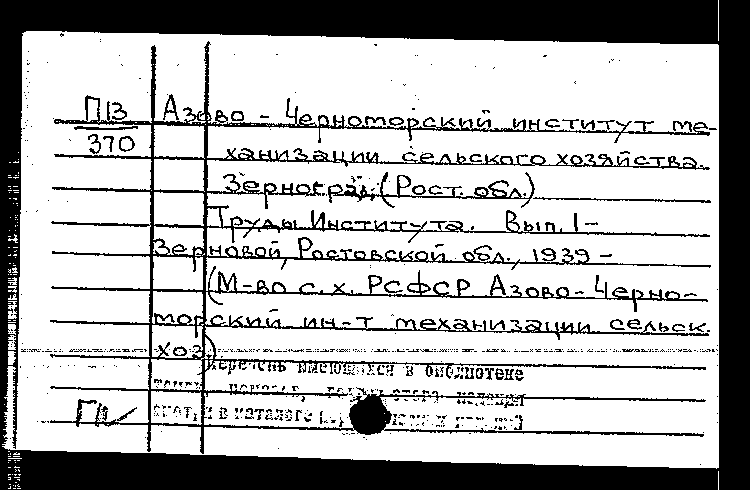 П13 Азово - Черноморский институт ме-
370 ханизации сельского хозяйства.
Зерноград, (Рост. обл.)
Труды Института. Вып. 1-
Зерновой, Ростовской обл., 1939 -
(М-во с. х. РСФСР Азово-Черно-
морский ин-т механизации сельск.
хоз.)
Перечень имеющихся в библиотеке
номеров,
в каталоге